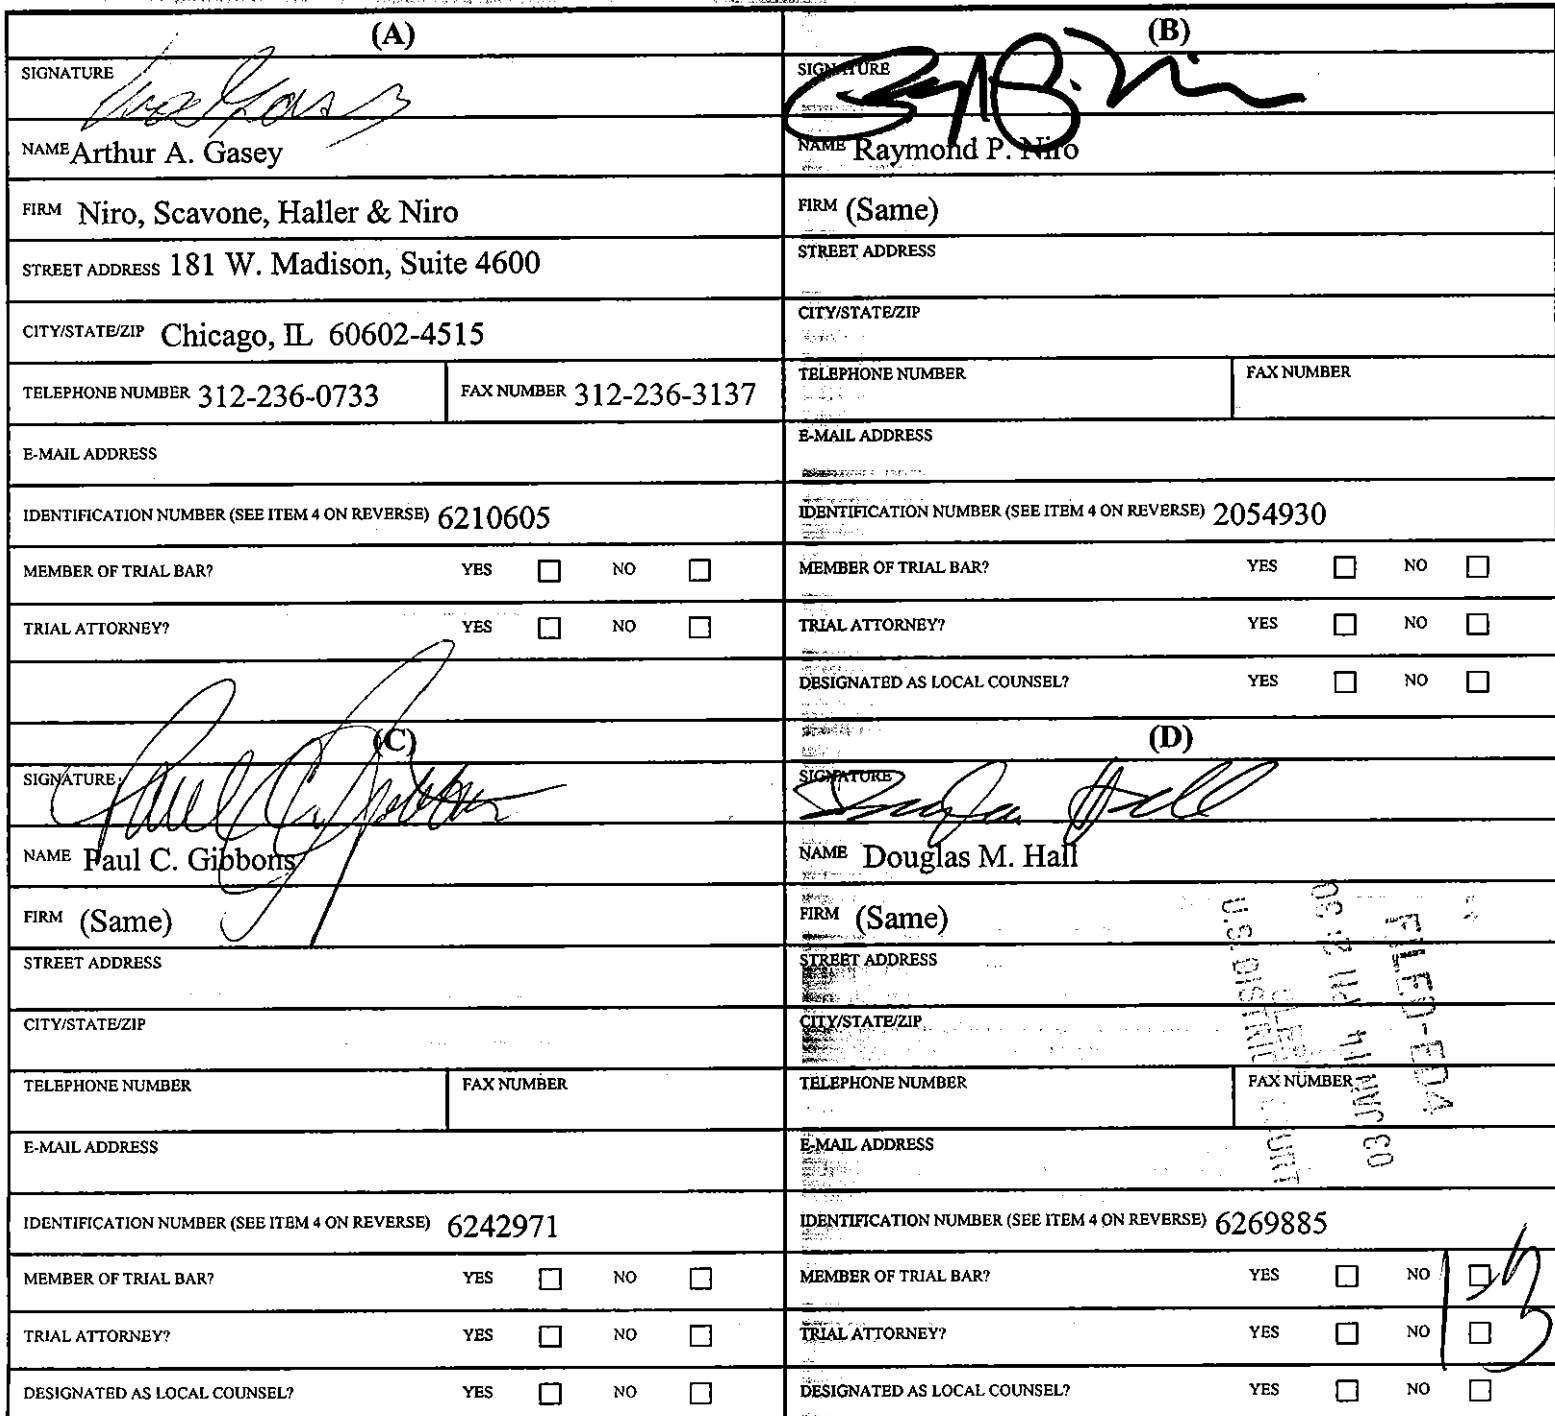 (A)
SIGNATURE
NAME Arthur A. Gasey
FIRM Niro, Scavone, Haller & Niro
STREET ADDRESS 181 W. Madison, Suite 4600
CITY/STATE/ZIP Chicago, IL 60602-4515
TELEPHONE NUMBER 312-236-0733 FAX NUMBER 312-236-3137
E-MAIL ADDRESS
IDENTIFICATION NUMBER (SEE ITEM 4 ON REVERSE) 6210605
MEMBER OF TRIAL BAR? YES NO
TRIAL ATTORNEY? YES NO
(B)
SIGNATURE
NAME Raymond P. Niro
FIRM (Same)
STREET ADDRESS
CITY/STATE/ZIP
TELEPHONE NUMBER FAX NUMBER
E-MAIL ADDRESS
IDENTIFICATION NUMBER (SEE ITEM 4 ON REVERSE) 2054930
MEMBER OF TRIAL BAR? YES NO
TRIAL ATTORNEY? YES NO
DESIGNATED AS LOCAL COUNSEL? YES NO
(C)
SIGNATURE Paul C. Gibbons
NAME Paul C. Gibbons
FIRM (Same)
STREET ADDRESS
CITY/STATE/ZIP
TELEPHONE NUMBER FAX NUMBER
E-MAIL ADDRESS
IDENTIFICATION NUMBER (SEE ITEM 4 ON REVERSE) 6242971
MEMBER OF TRIAL BAR? YES NO
TRIAL ATTORNEY? YES NO
DESIGNATED AS LOCAL COUNSEL? YES NO
(D)
SIGNATURE Douglas Hall
NAME Douglas M. Hall
FIRM (Same)
STREET ADDRESS
CITY/STATE/ZIP
TELEPHONE NUMBER FAX NUMBER
E-MAIL ADDRESS
IDENTIFICATION NUMBER (SEE ITEM 4 ON REVERSE) 6269885
MEMBER OF TRIAL BAR? YES NO
TRIAL ATTORNEY? YES NO
DESIGNATED AS LOCAL COUNSEL? YES NO
FILED-ED4
03 JAN 14 PM
U.S. DISTRICT COURT